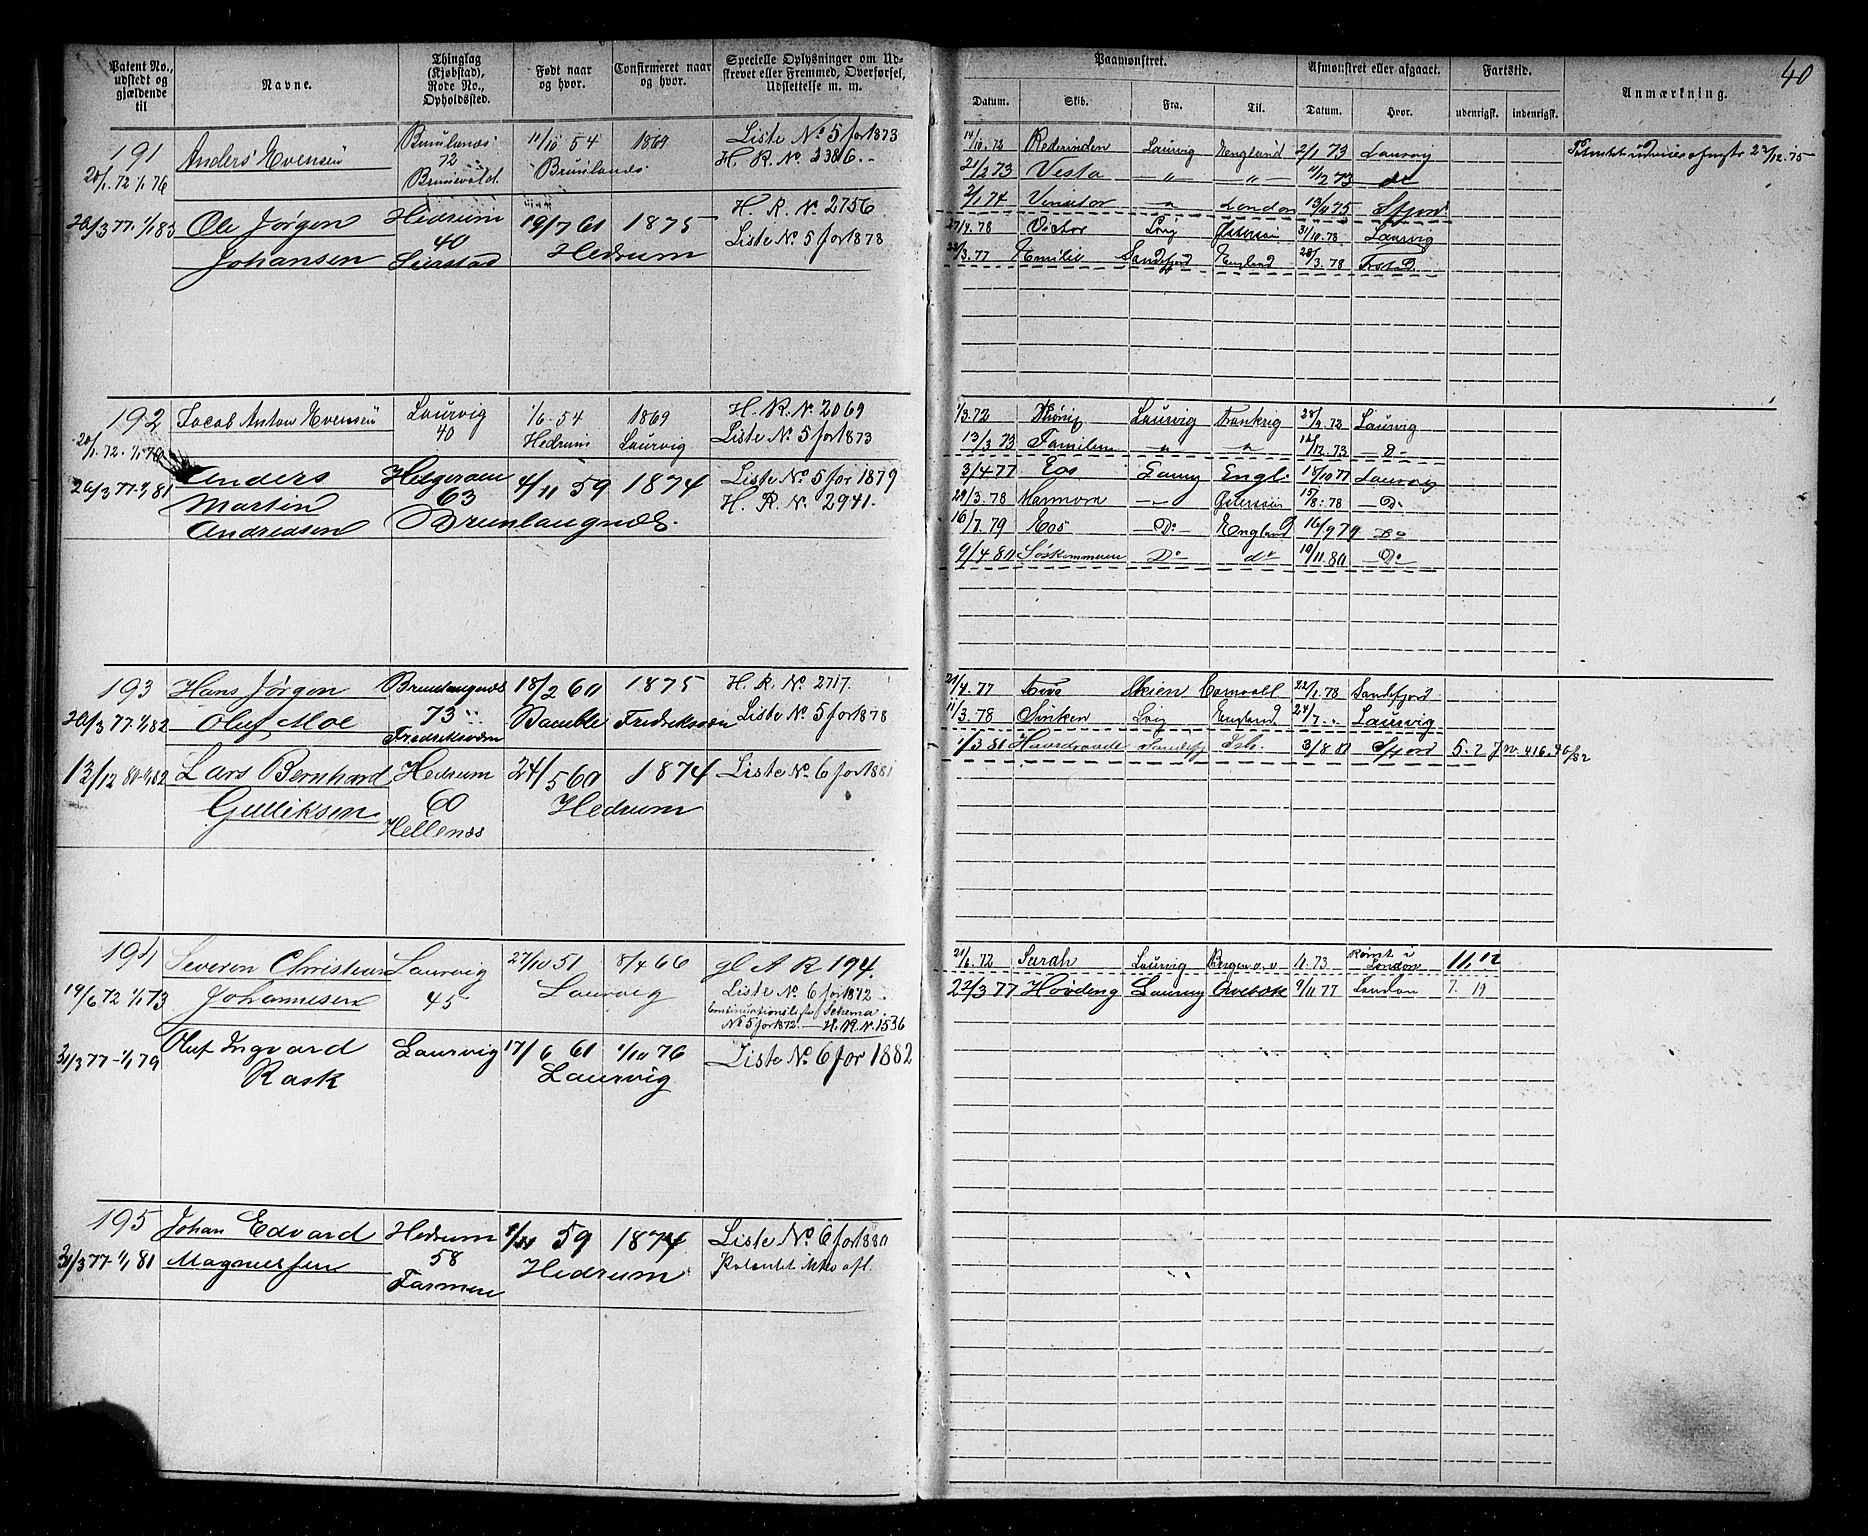 40
Patent No., udstedt og gjældende til
Navne.
Thinglag (Kjøbstad), Rode No., Opholdssted.
Født naar og hvor.
Confirmeret naar og hvor.
Specielle Oplysninger om Udskrevet eller Fremmed, Overførsel, Udslettelse m. m.
Paamønstret.
Afmønstret eller afgaaet.
Fartstid.
Anmærkning.
Datum. Skib. Fra. Til. Datum. Hvor. udenrigsk. indenrigsk.
191 Anders Evensen Brunlanæs 11/10 54 1869 Liste No 5 for 1873
72 Brunlanæs H. R. No 2386.
20/1.72 1/1 76
20/3 77-1/1 83 Ole Jørgen Hedrum 19/7 61 1875 H. R. No 2756
Johansen 40 Hedrum Liste No 5 for 1878
14/10.72 Laurvig England 2/1 73 Laurvig
2/2 73 Vesta — „ — — „ — 73 do
2/1 74 London 13/11 75 Sfjord
27/4.78 Victor Lvig Østersøen 31/10.78 Laurvig
22/3.77 Emilie Sandefjord England 28/3.78
192 Jacob Anton Evensen Laurvig 1/6.54 1869 H. R. No 2069
40 Hedrum Laurvig Liste No 5 for 1873
20/1.72-1/1 76
20/3 77-1/1 81 Anders Helgeroen 4/11 59 1874 Liste No 5 for 1879
Martin 63 H. R. No 2941.
Andreasen Brunlaugnæs.
1/3.72 Laurvig Frankrig 28/9.72 Laurvig
13/3 73 Familien „ „ 12/12.73 — D —
3/4 77 Eos Laurv Engl. 18/10 77 Laurvig
29/3.78 Marmora — „ — Østersøen 15/8.78 — Do
16/7.79 Eos — Do — England 16/9 79 Do
9/4 80 Do do 10/11.80 — Do
193 Hans Jørgen Brunlaugnæs 18/2 60 1875 H. R. No 2717.
20/3 77-1/1 82 Oluf Moe 73 Bamble Fredriksværn Liste No 5 for 1878
Fredriksværn
13/12 80-1/1 82 Lars Bernhard Hedrum 24/5 60 1874 Liste No 6 for 1881
Gulliksen 60 Hedrum
Hellenæs
21/4.77 Skien Cornvall 22/1.78 Sandefjord
11/3.78 Lvig England 24/7. „ Laurvig
1/3 81 Sandefj 3/8 81 Sfjord 5.2
194 Severin Christian Laurvig 27/10 51 8/4 66 gl A R 194.
19/6 72 1/1 73 Johannesen 45 Laurvig Liste No 6 for 1872.
Continuationsliste Schema
No 5 for 1872. — H. R. No 1536
21/3 77-1/1 79 Oluf Ingvard Laurvig 17/6 61 1/10 76 Liste No 6 for 1882
Rask Laurvig
21/6.72 Sarah Laurvig Bergen o. v 11.73 Rømt i London 11.12
22/3 77 Høvding Laurvig 9/11 77 London 7. 19
195 Johan Edvard Hedrum 59 1874 Liste No 6 for 1880
21/3 77-1/1 81 Magnussen 58 Hedrum Patentet ikke afl.
Farmen